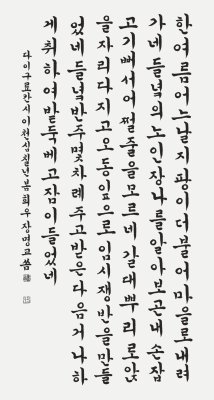 한여름 어느날 지팡이 더불어 마을로 내려
가 네들녘의 노인장 나를 알아보곤 내 손잡
고 기뻐서 어쩔줄을 모르네 갈대뿌리로 앉
을 자리 다지고 오동잎으로 임시 쟁반을 만들
었네 들녘 반주 몇 차례 주고받은 다음 거나하
게 취하여 밭둑 베고 잠이 들었네
다이구료칸 시 이천십칠년 봄 희우 장명교 씀